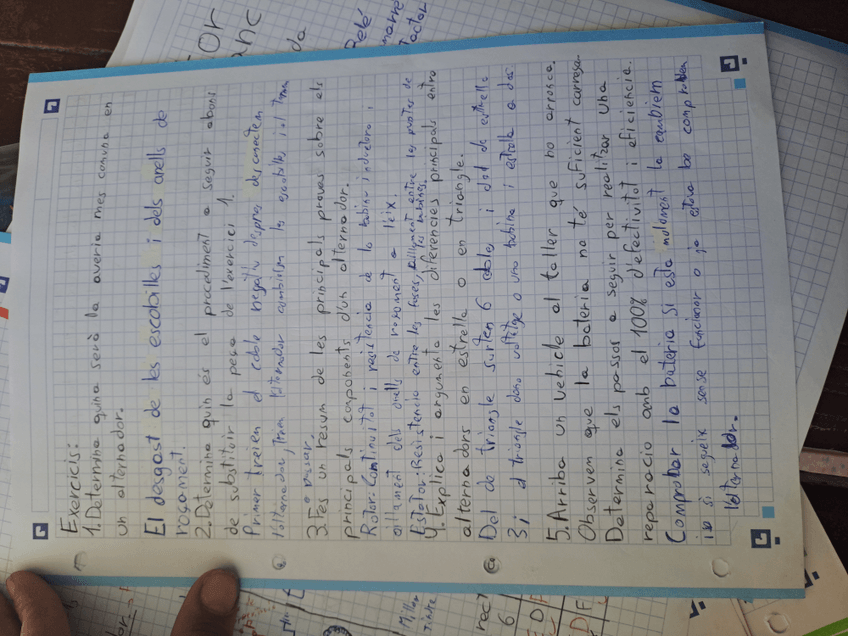 Exercicis:
1. Determina quina serà la averia mes comuna en
un alternador.
El desgast de les escobilles i dels anells de
roçament.
2. Determina quin és el procediment a seguir abans
de substituir la peça de l'exercici 1.
Primer treiem el cable negatiu despres desmontem
l'alternador, i cambiem les escobilles i el
a posar
3. Fes un resum de les principals proves sobre els
principals components d'un alternador.
Rotor: Continuitat i resistencia de la bobina inductora i
aillament dels anells de roçament a l'eix
Estator: Resistencia entre les fases, aillament entre les
4. Explica i argumenta les diferencies principals entre
alternadors en estrella o en triangle.
Del de triangle surten 6 cables i del de estrella
3; el triangle dona voltatge a una bobina i estrella a dos
5. Arriba un vehicle al taller que no arronca.
Observem que la bateria no té suficient carrega.
Determina els passos a seguir per realitzar una
reparacio amb el 100% d'efectivitat i eficiencia.
Comprobar la bateria si esta malament la cambiem
si segueix sense funcionar o ja estava be comproben
l'alternador.
Pelé
da
or
anc
Factor
6